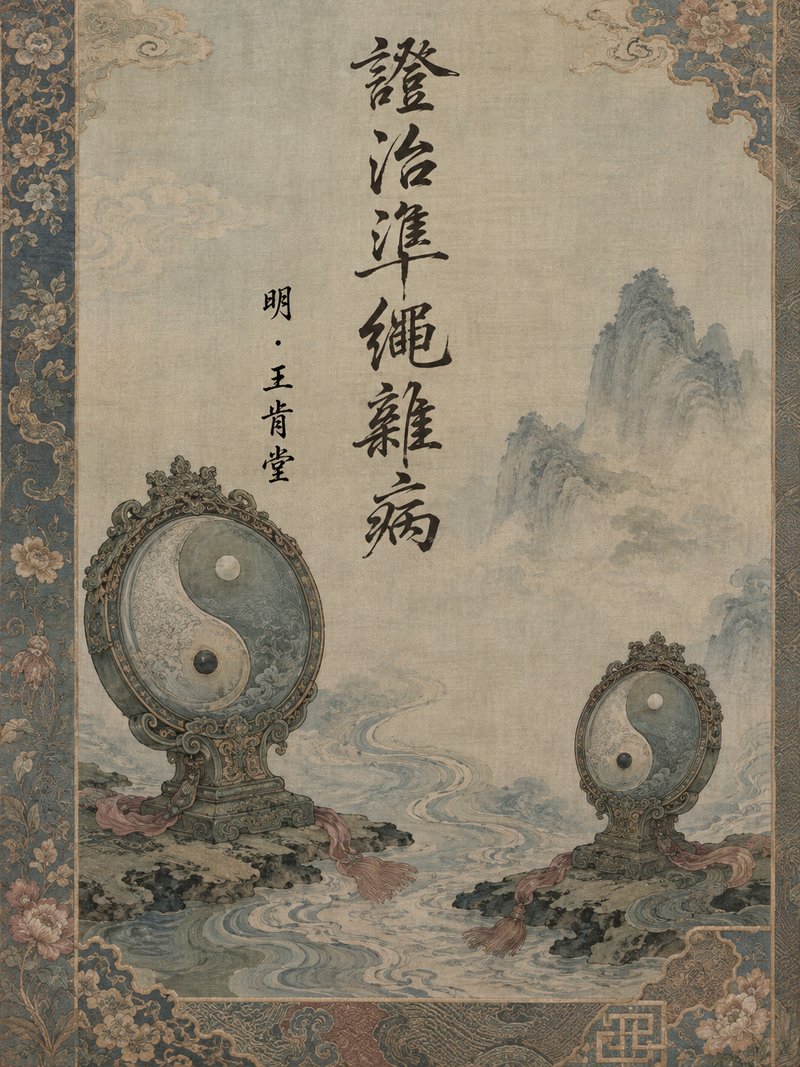 證治準繩雜病
明·王肯堂